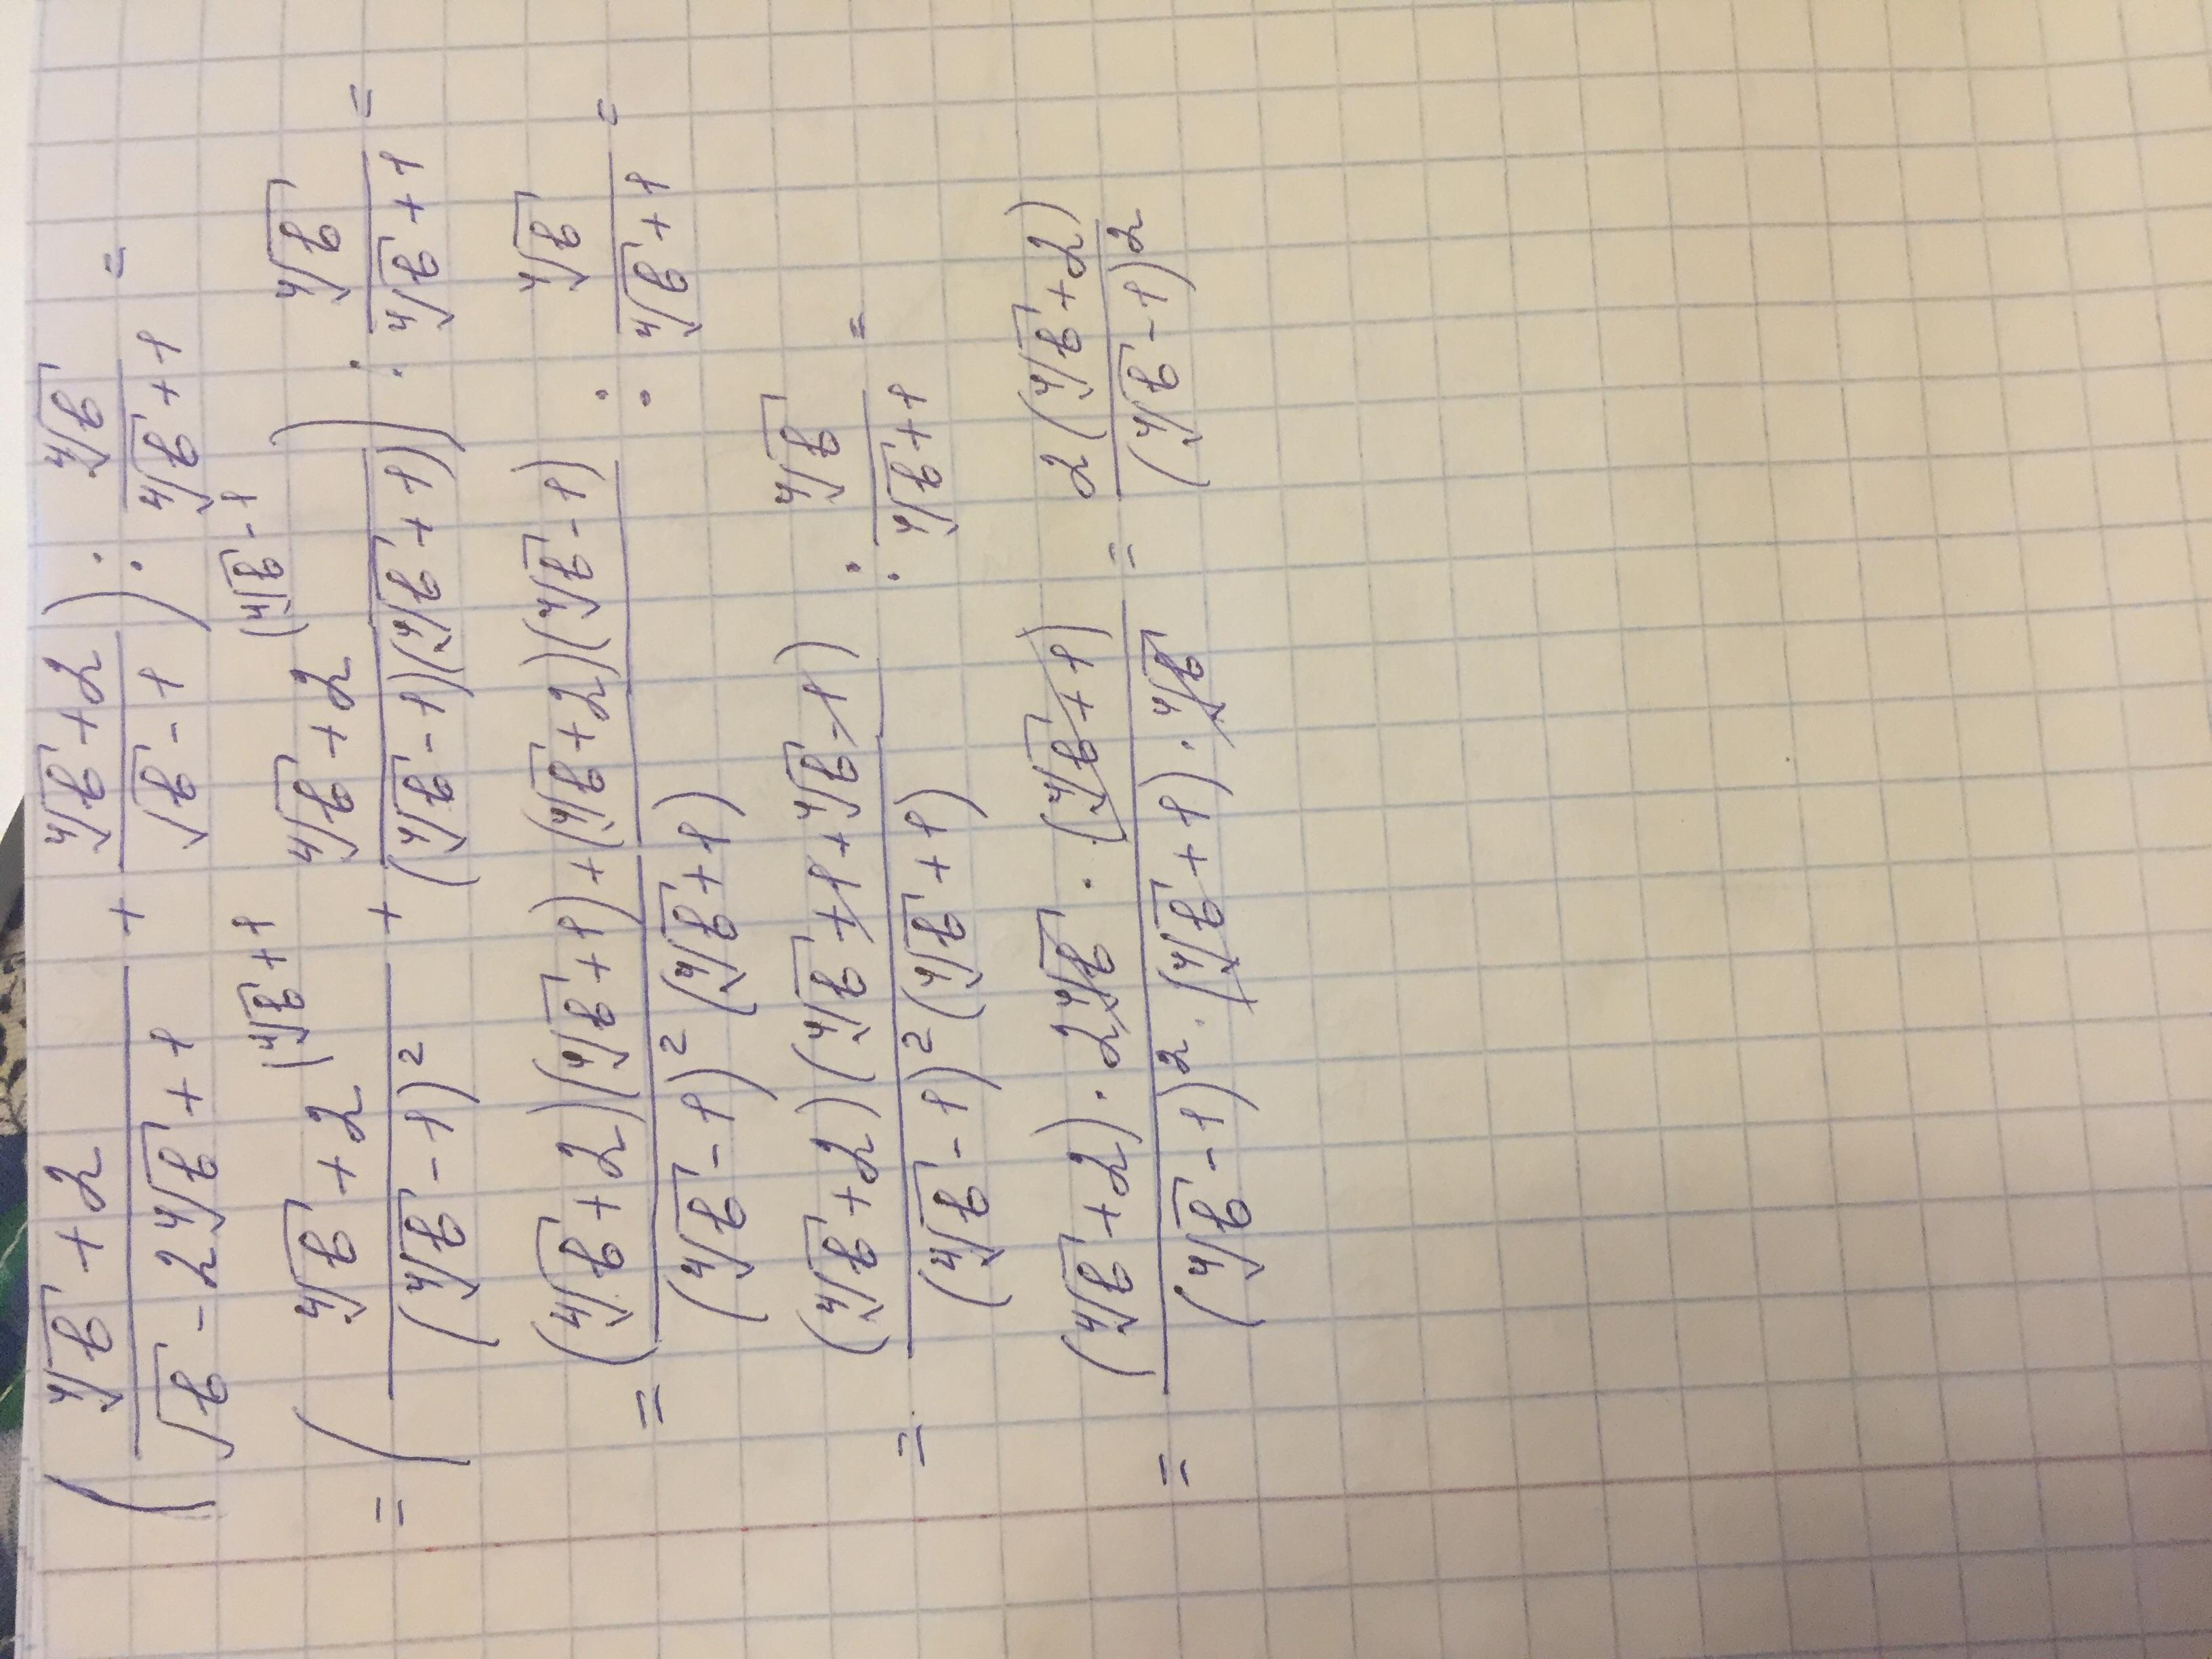 (\frac{\sqrt[4]{b}+2}{\sqrt{b}-2\sqrt[4]{b}+1} + \frac{\sqrt[4]{b}+2}{\sqrt{b}-1}) : \frac{\sqrt[4]{b}}{\sqrt[4]{b}+1} =
= (\frac{\sqrt[4]{b}+2^{(\sqrt[4]{b}+1}}{(\sqrt[4]{b}-1)^2} + \frac{\sqrt[4]{b}+2^{(\sqrt[4]{b}-1}}{(\sqrt[4]{b}-1)(\sqrt[4]{b}+1)}) : \frac{\sqrt[4]{b}}{\sqrt[4]{b}+1} =
= \frac{(\sqrt[4]{b}+2)(\sqrt[4]{b}+1)+(\sqrt[4]{b}+2)(\sqrt[4]{b}-1)}{(\sqrt[4]{b}-1)^2(\sqrt[4]{b}+1)} : \frac{\sqrt[4]{b}}{\sqrt[4]{b}+1} =
= \frac{(\sqrt[4]{b}+2)(\sqrt[4]{b}+1+\sqrt[4]{b}-1)}{(\sqrt[4]{b}-1)^2(\sqrt[4]{b}+1)} : \frac{\sqrt[4]{b}}{\sqrt[4]{b}+1} =
= \frac{(\sqrt[4]{b}+2)\cdot 2\sqrt[4]{b}\cdot(\sqrt[4]{b}+1)}{(\sqrt[4]{b}-1)^2\cdot(\sqrt[4]{b}+1)\cdot\sqrt[4]{b}} = \frac{2(\sqrt[4]{b}+2)}{(\sqrt[4]{b}-1)^2}